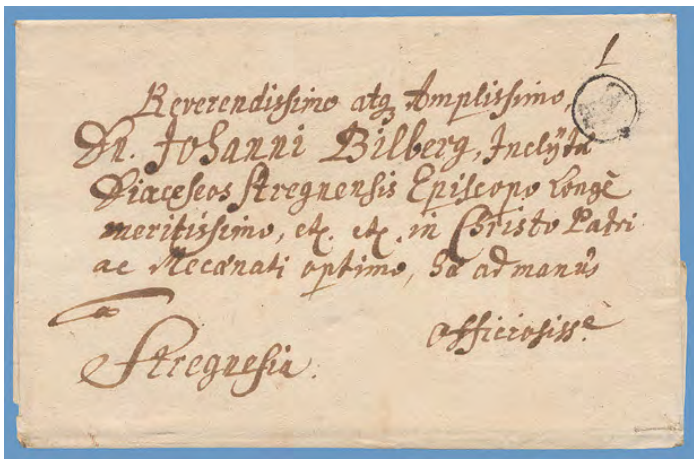 1
Reverendissimo atq; Amplissimo,
Dn. Johanni Bilberg, Inclÿtæ
Diæceseos Stregnensis Episcopo longè
meritissimo, etc. etc. in Christo Patri
ac Mecænati optimo, hæ ad manus
officiosissè
a
Stregnesia.